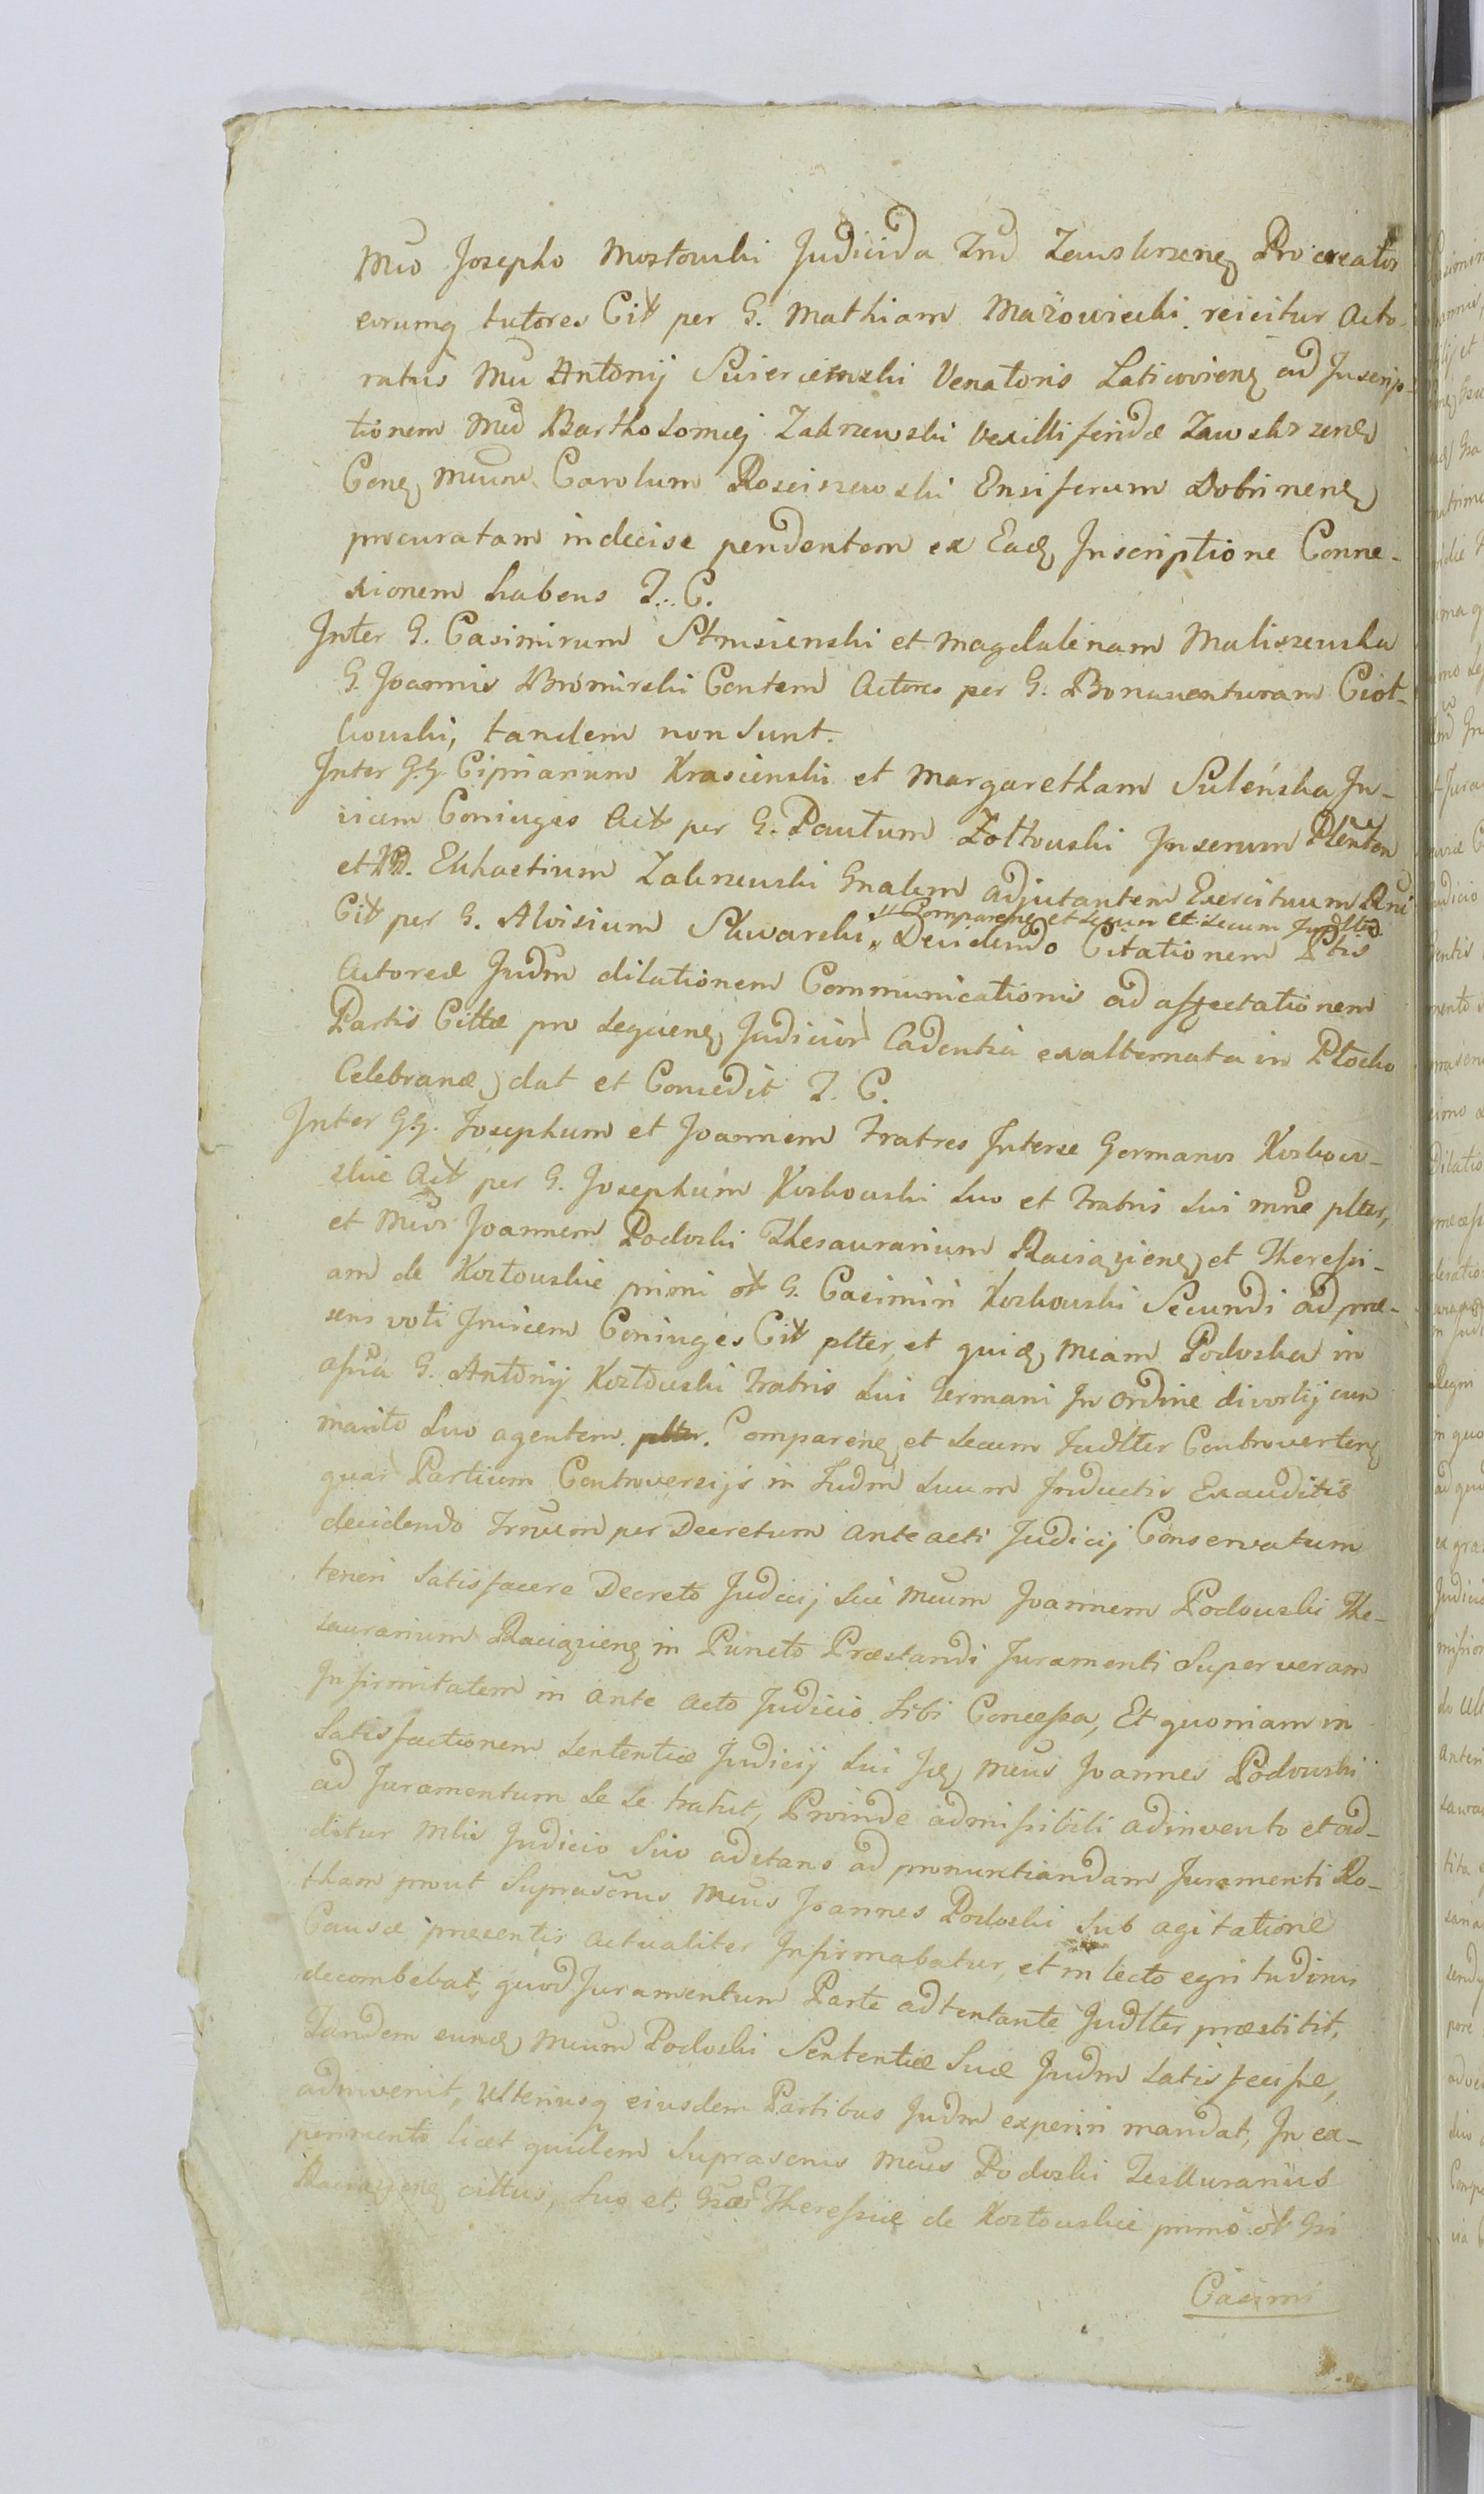 Mco Josepho Mostowski Judicida Trrd Zawskrzeneq Procreator
eorumq tutores Citt per G. Mathiam Mazowiecki reicitur Acto-
ratus Mci Antonij Swiercienski Venatoris Laticovieneq ad Inscrip-
tionem Mci Bartholomej Zakrzewski Vexilliferidæ Zawskrzeneq
Ceneq Mcum Carolum Rosciszewski Ensiferum Dobrineneq
procuratam indecise pendentem ex Eadq Inscriptione Conne-
xionem habens J. C.
Inter G. Casimirum Strusienski et Magdalenam Maliszewska
G. Joannis Bromirski Contem Actores per G. Bonaventuram Ciot-
kowski, tandem non sunt.
Inter G.G. Ciprianum Krasienski et Margaretham Suleńska In-
vicem Coniuges Actt per G. Paulum Zołtowski Juserum Plenten
et M. Eukactium Zakrzewski Gnalem adjutantem Exercituum Rni
Citt per G. Aloisium Skwarski „ Decidendo Citationem Ptis
„ Compareneq et secum et secum Judlter
Actoreæ Judm dilationem Communicationis ad affectationem
Partis Cittæ pro sequeneq Judicior Cadentia exalternata in Płocko
Celebrandæ dat et Concedit J. C.
Inter G.G. Josephum et Joannem Fratres Interse Germanos Koskow-
skie Actt per G. Josephum Koskowski Suo et Fratris Sui mne plter,
et Mcos Joannem Podoski Thesaurarium Raciązieneq et Theressi-
am de Koztowskie primi ott G. Casimiri Koskowski Secundi ad præ-
sens voti Invicem Coniuges Citt plter, et quidq Mcam Podoska in
assna G. Antonij Koztowski Fratris Sui Germani In Ordine divortij cum
marito Suo agentem. Compareneq et Secum Judlter Controverteneq
quar Partium Controversijs in Judm Suum Inductis Exauditis
decidendo Trnum per Decretum ante acti Judicij Conservatum
teneri Satisfacere Decreto Judicij Sui Mcum Joannem Podowski The-
saurarium Raciązieneq in Puncto Præstandi Juramenti Super veram
Infirmitatem in ante acto Judicio Sibi Concessa, Et quoniam in
Satisfactionem Sententiæ Judicij Sui Idq Mcus Joannes Podowski
ad Juramentum Se Se tratut, Proinde admissibili adinvento et ad-
ditur Mlis Judicio Suo adstans ad pronuntiandam Juramenti Ro-
tham prout Suprascrus Mcus Joannes Podoski Sub agitatione
Causæ præsentis actualiter Infirmabatur, et in lecto egritudinis
decombebat, quod Juramentum Parte adtentante Judlter præstitit,
Tandem eundq Mcum Podoski Sententiæ Suæ Judm Satisfecisse,
adinvenit, Ulteriusq eiusdem Partibus Judm experiri mandat, In ex-
perimento licet quidem Suprascrus Mcus Podoski Tesauranus
Raciązieneq cittus, Suo et Gsæ Theressiæ de Koztowskie primo ott Gsi
Casimi